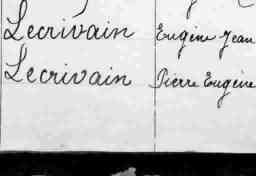 Lecrivain Eugène Jean
Lecrivain Pierre Eugène